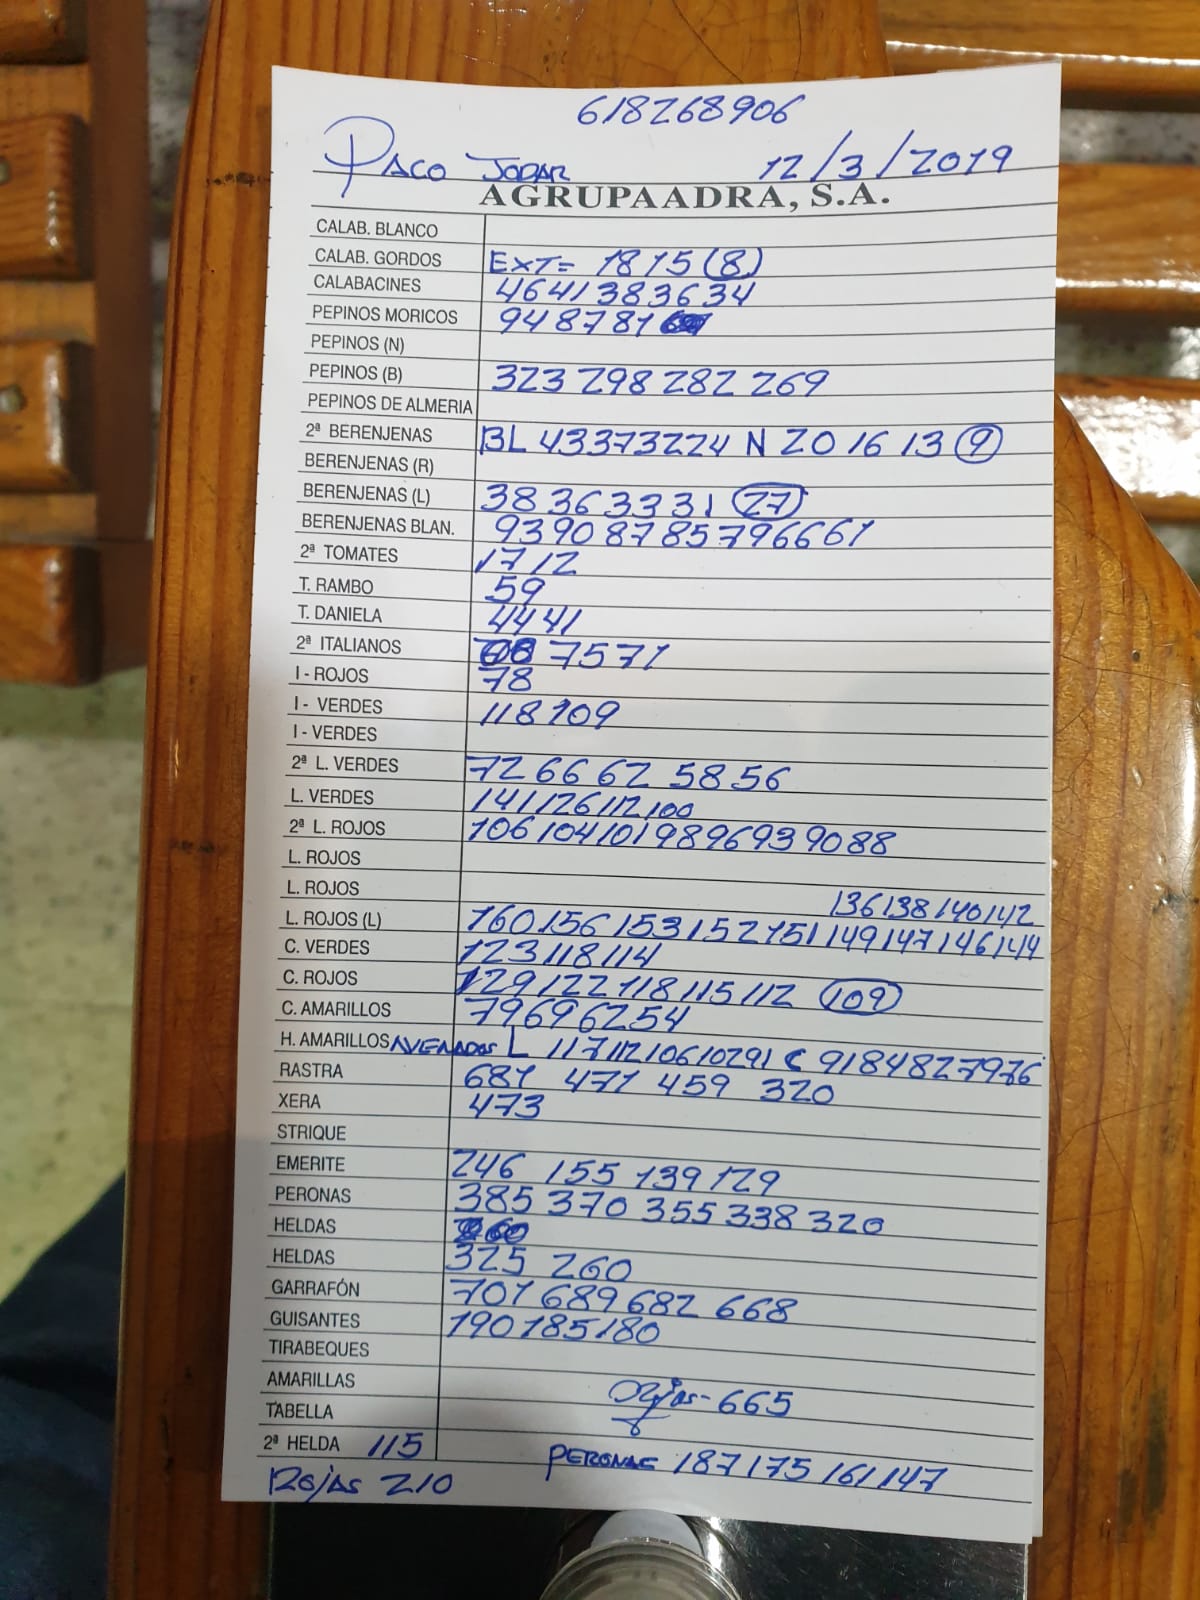 618268906
PACO JODAR 12/3/2019
AGRUPAADRA, S.A.
CALAB. BLANCO
CALAB. GORDOS EXT= 18 15 (8)
CALABACINES 46 41 38 36 34
PEPINOS MORICOS 94 87 81
PEPINOS (N)
PEPINOS (B) 323 298 282 269
PEPINOS DE ALMERIA
2ª BERENJENAS BL 43 37 32 24 N 20 16 13 (9)
BERENJENAS (R)
BERENJENAS (L) 38 36 33 31 (27)
BERENJENAS BLAN. 93 90 87 85 79 66 61
2ª TOMATES 17 12
T. RAMBO 59
T. DANIELA 44 41
2ª ITALIANOS 75 71
I - ROJOS 78
I - VERDES 118 109
I - VERDES
2ª L. VERDES 72 66 62 58 56
L. VERDES 141 126 112 100
2ª L. ROJOS 106 104 101 98 96 93 90 88
L. ROJOS
L. ROJOS 136 138 140 142
L. ROJOS (L) 160 156 153 152 151 149 147 146 144
C. VERDES 123 118 114
C. ROJOS 129 122 118 115 112 (109)
C. AMARILLOS 79 69 62 54
H. AMARILLOS AVENADOS L 117 112 106 102 91 C 91 84 82 79 76
RASTRA 681 471 459 320
XERA 473
STRIQUE
EMERITE 246 155 139 129
PERONAS 385 370 355 338 320
HELDAS
HELDAS 325 260
GARRAFÓN 701 689 682 668
GUISANTES 190 185 180
TIRABEQUES
AMARILLAS
TABELLA 665
2ª HELDA 115
PERONAS 187 175 161 147
ROJAS 210